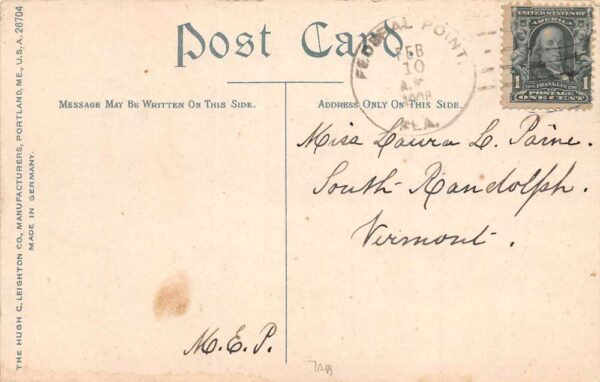 Post Card
MESSAGE MAY BE WRITTEN ON THIS SIDE.
ADDRESS ONLY ON THIS SIDE.
FEDERAL POINT,
FEB
10
1908
FLA.
THE UNITED STATES OF
AMERICA
1 FRANKLIN 1
POSTAGE
ONE CENT
Miss Laura L. Paine.
South Randolph.
Vermont.
M.E.P.
THE HUGH C. LEIGHTON CO., MANUFACTURERS, PORTLAND, ME., U.S.A. 26704
MADE IN GERMANY.